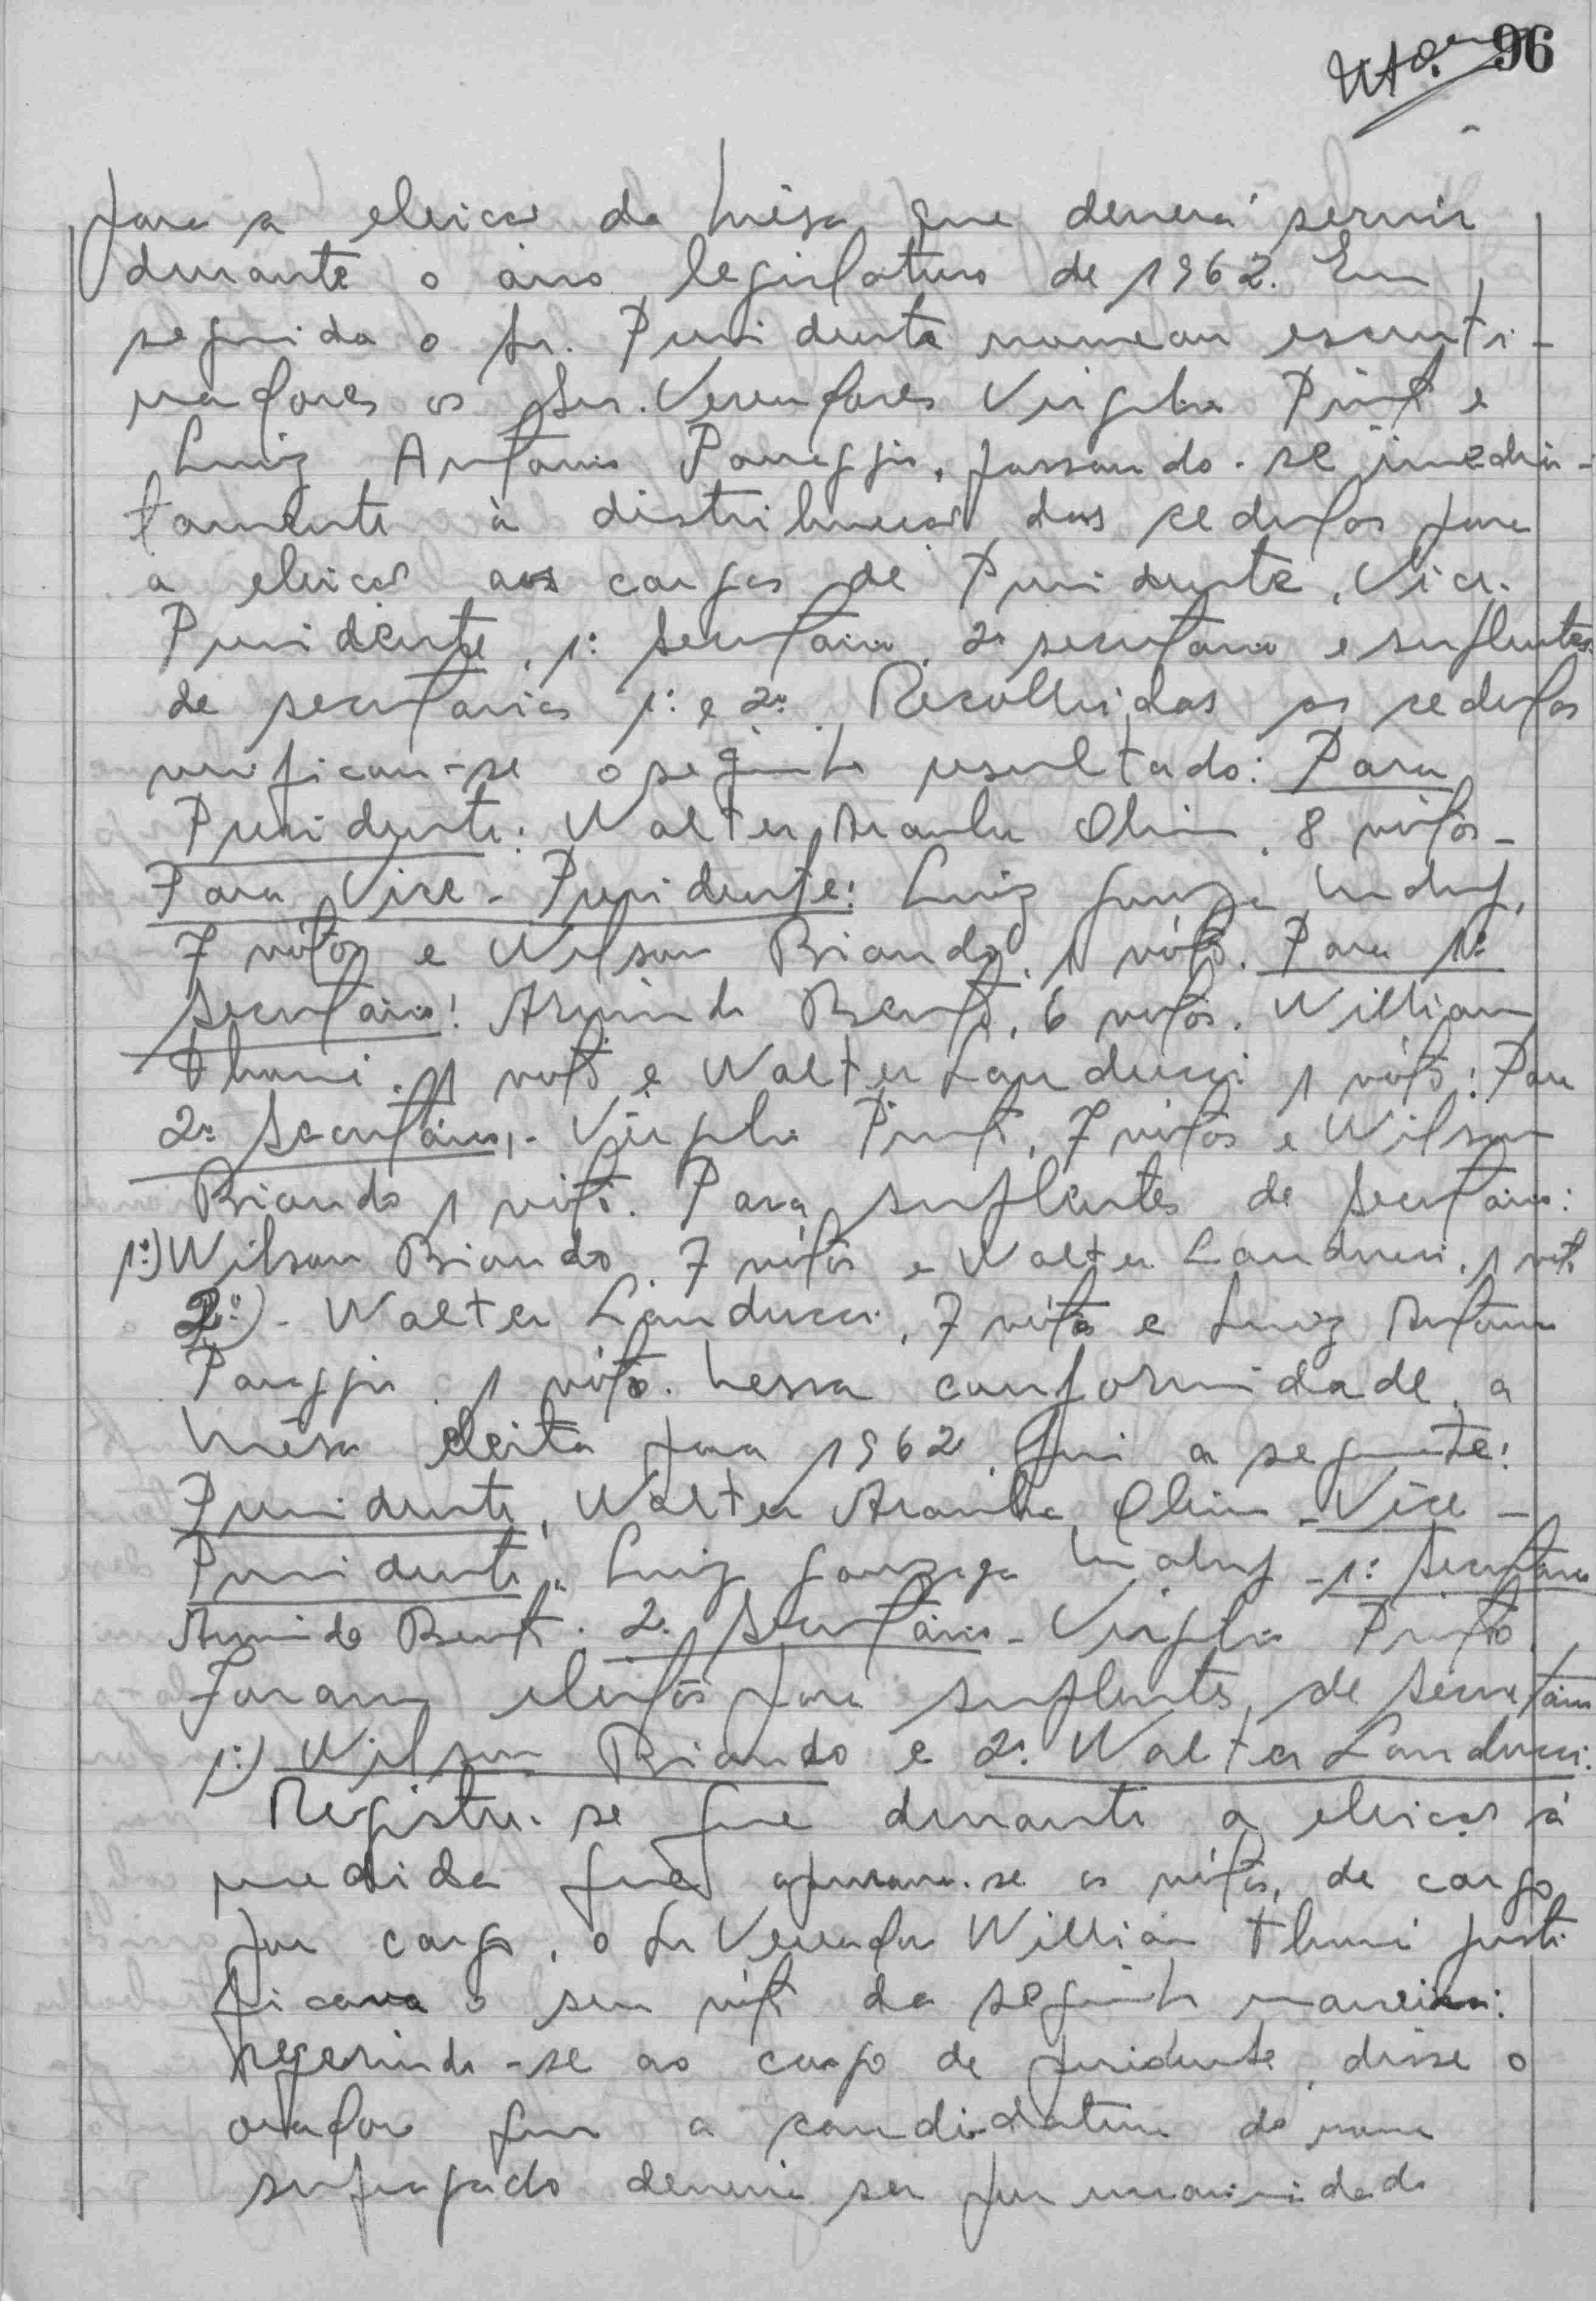 96
para a eleição da Mêsa que deverá servir
durante o ano legislativo de 1962. Em
seguida o Sr. Presidente nomeou escruti-
nadores os Srs. Vereadores Virgilio Pinto e
Luiz Antonio Pareggio, passando-se imedia-
tamente à distribuição das cedulas para
a eleição aos cargos de Presidente, Vice-
Presidente, 1º Secretario, 2º secretario e suplentes
de secretarios 1º e 2º. Recolhidas as cedulas
verificou-se o seguinte resultado: Para
Presidente: Walter Aranha Olim, 8 vótos-
Para Vice-Presidente: Luiz Gonzaga Maluf,
7 vótos e Wilson Biondo, 1 vóto. Para 1º
Secretário: Armindo Bento, 6 vótos, Willian
Thomé, 1 voto e Walter Landucci 1 vóto: Para
2º Secretário,- Virgilio Pinto, 7 vótos e Wilson
Biondo 1 vóto. Para suplentes de Secretário:
1º) Wilson Biondo, 7 vótos e Walter Landucci, 1 voto
2º)- Walter Landucci, 7 vótos e Luiz Antonio
Pareggio, 1 vóto. Nessa conformidade, a
Mêsa eleita para 1962, foi a seguinte:
Presidente, Walter Aranha Olim - Vice-
Presidente, Luiz Gonzaga Maluf - 1º Secretario
Armindo Bento. 2º Secretário - Virgilio Pinto.
Foram eleitos para suplentes de Secretário
1º) Wilson Biondo e 2º Walter Landucci.
Registre-se que durante a eleição à
medida que apurava-se os vótos, de cargo
por cargo, o Sr Vereador Willian Thomé justi
ficava o seu vóto da seguinte maneira:
Referindo-se ao cargo de presidente, disse o
orador que a candidatura do nome
sufragado deveria ser por unanimidade